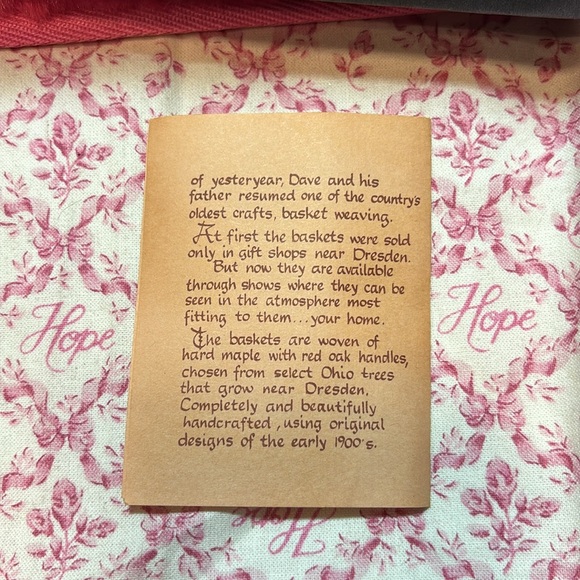 of yesteryear, Dave and his
father resumed one of the country's
oldest crafts, basket weaving.
At first the baskets were sold
only in gift shops near Dresden.
But now they are available
through shows where they can be
seen in the atmosphere most
fitting to them...your home.
The baskets are woven of
hard maple with red oak handles,
chosen from select Ohio trees
that grow near Dresden.
Completely and beautifully
handcrafted, using original
designs of the early 1900's.
Hope
Hope
Hope
Hope